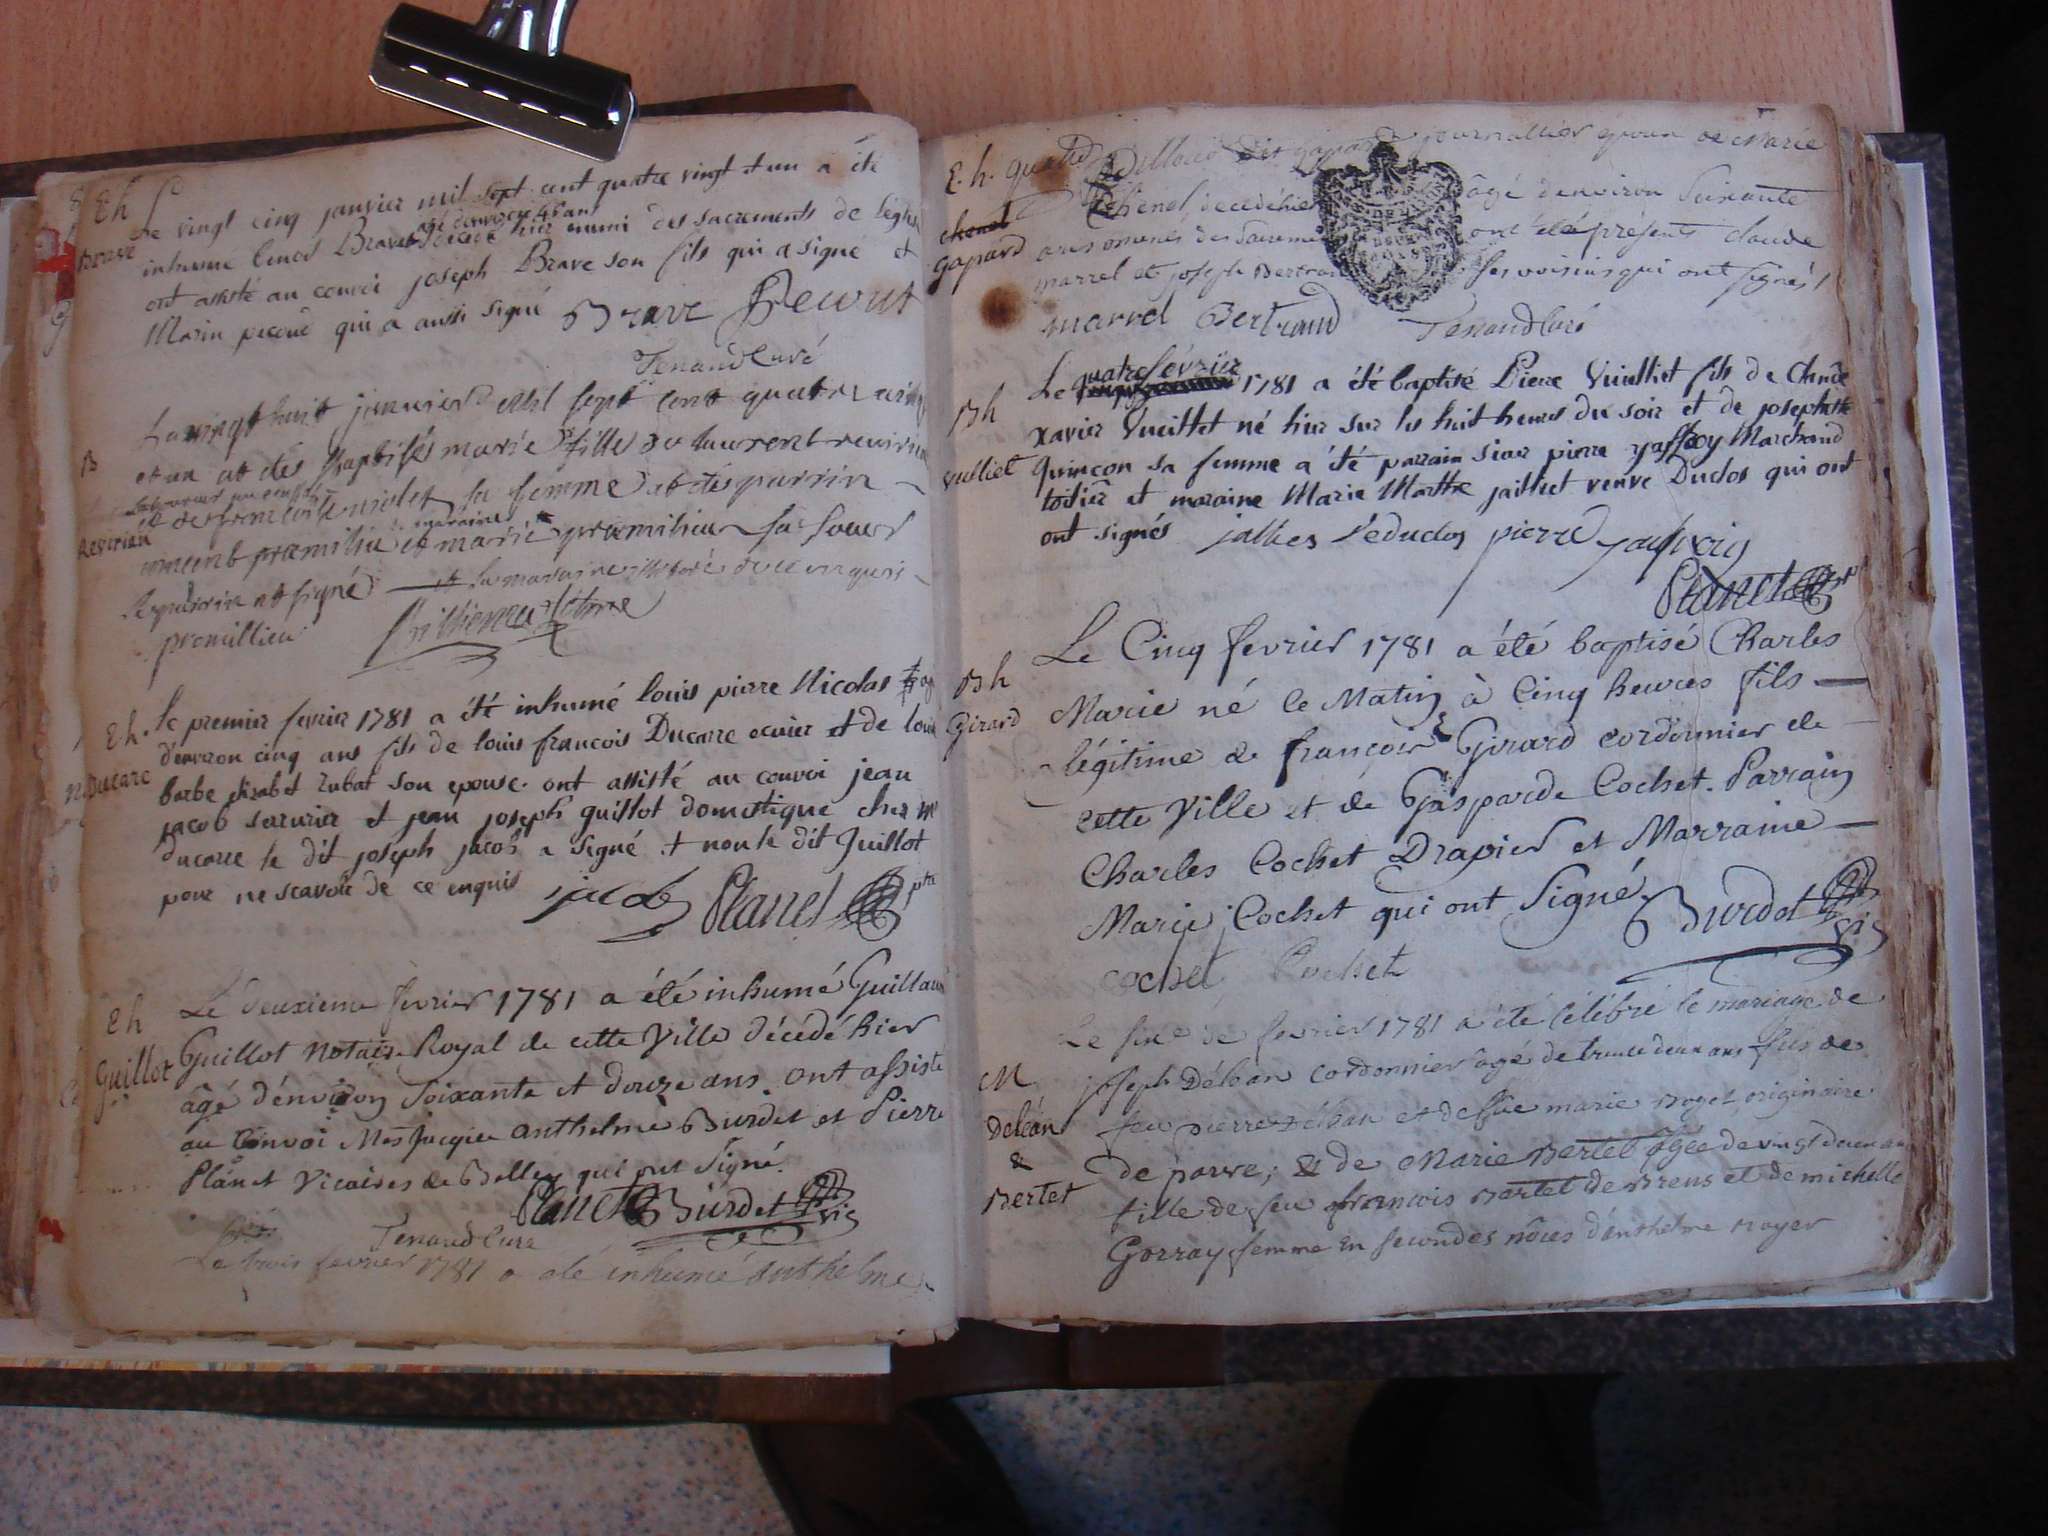 Eh
Brave
Le vingt cinq janvier mil sept cent quatre vingt et un a été
agé denviron 46 ans
inhumé Brave décédé hier muni des sacrements de l'église
ont assisté au convoi joseph Brave son fils qui a signé et
Marin pecoud qui a aussi signé Brave Pecout
Tenand Curé
B
Reverien
Le vingt huit janvier mil sept cent quatre vingt
et un at étés Baptisés marie fille de laurent
de françoise sa femme at étés parrin
marraine
et marie premilieu sa soeur
Le parrin at signé et la maraine de ce enquis
premillieu
Eh.
Ducare
le premier fevrier 1781 a été inhumé louis pierre Nicolas
d'environ cinq ans fils de louis françois Ducarre ecuier et de louise
barbe elizabet rubat son epouse. ont assisté au convoi jean
jacob serurier et jean joseph guillot domestique chez mr
ducarre le dit joseph jacob a signé et non le dit Guillot
pour ne scavoir de ce enquis jacob Planet ptre
Eh
Guillot
Le deuxieme fevrier 1781 a été inhumé Guillaume
Guillot Notaire Royal de cette Ville décédé hier
âgé d'environ soixante et douze ans. ont assisté
au Convoi anthelme Burdet et Pierre
Planet Vicaires de Belley qui ont signé.
Planet Burdet vic
Tenand Curé
Le trois fevrier 1781 a été inhumé Anthelme
E. h.
chenel
gaspard
dit gaspard journallier epoux de Marie
Chenel décédé hier âgé denviron Soixante
ans omunés des Sacrements ont été présents claude
marrel et joseph Bertrand ses voisins qui ont signés /
marrel Bertrand Tenand Curé
Bh
vulliet
Le quatre février 1781 a été baptisé Pierre Vuilliet fils de Claude
xavier Vuilliet né hier sur les huit heures du soir et de josephtte
Quinçon sa femme a été parrain sieur pierre Marchand
toilier et maraine Marie Marthe jailliet veuve Duclos qui ont
ont signés veduclos pierre
Planet
Bh
Girard
Le Cinq fevrier 1781 a été baptisé Charles
Marie né le Matin à Cinq heures fils —
légitime de françois Girard cordonnier de
cette Ville et de Gasparde Cochet. Parrain
Charles Cochet Drapier et Marraine —
Marie Cochet qui ont Signé. Burdet vic
cochet Cochet
M
Deléan
&
Bertet
Le sixe de fevrier 1781 a été célébré le mariage de
joseph Deléan cordonnier âgé de trente deux ans fils de
feu pierre Deléan et de marie originaire
de ; & de Marie Bertet âgée de vingt deux ans
fille de feu françois Bertet de Brens et de michelle
Gorray femme en secondes nôces d'anthelme royer